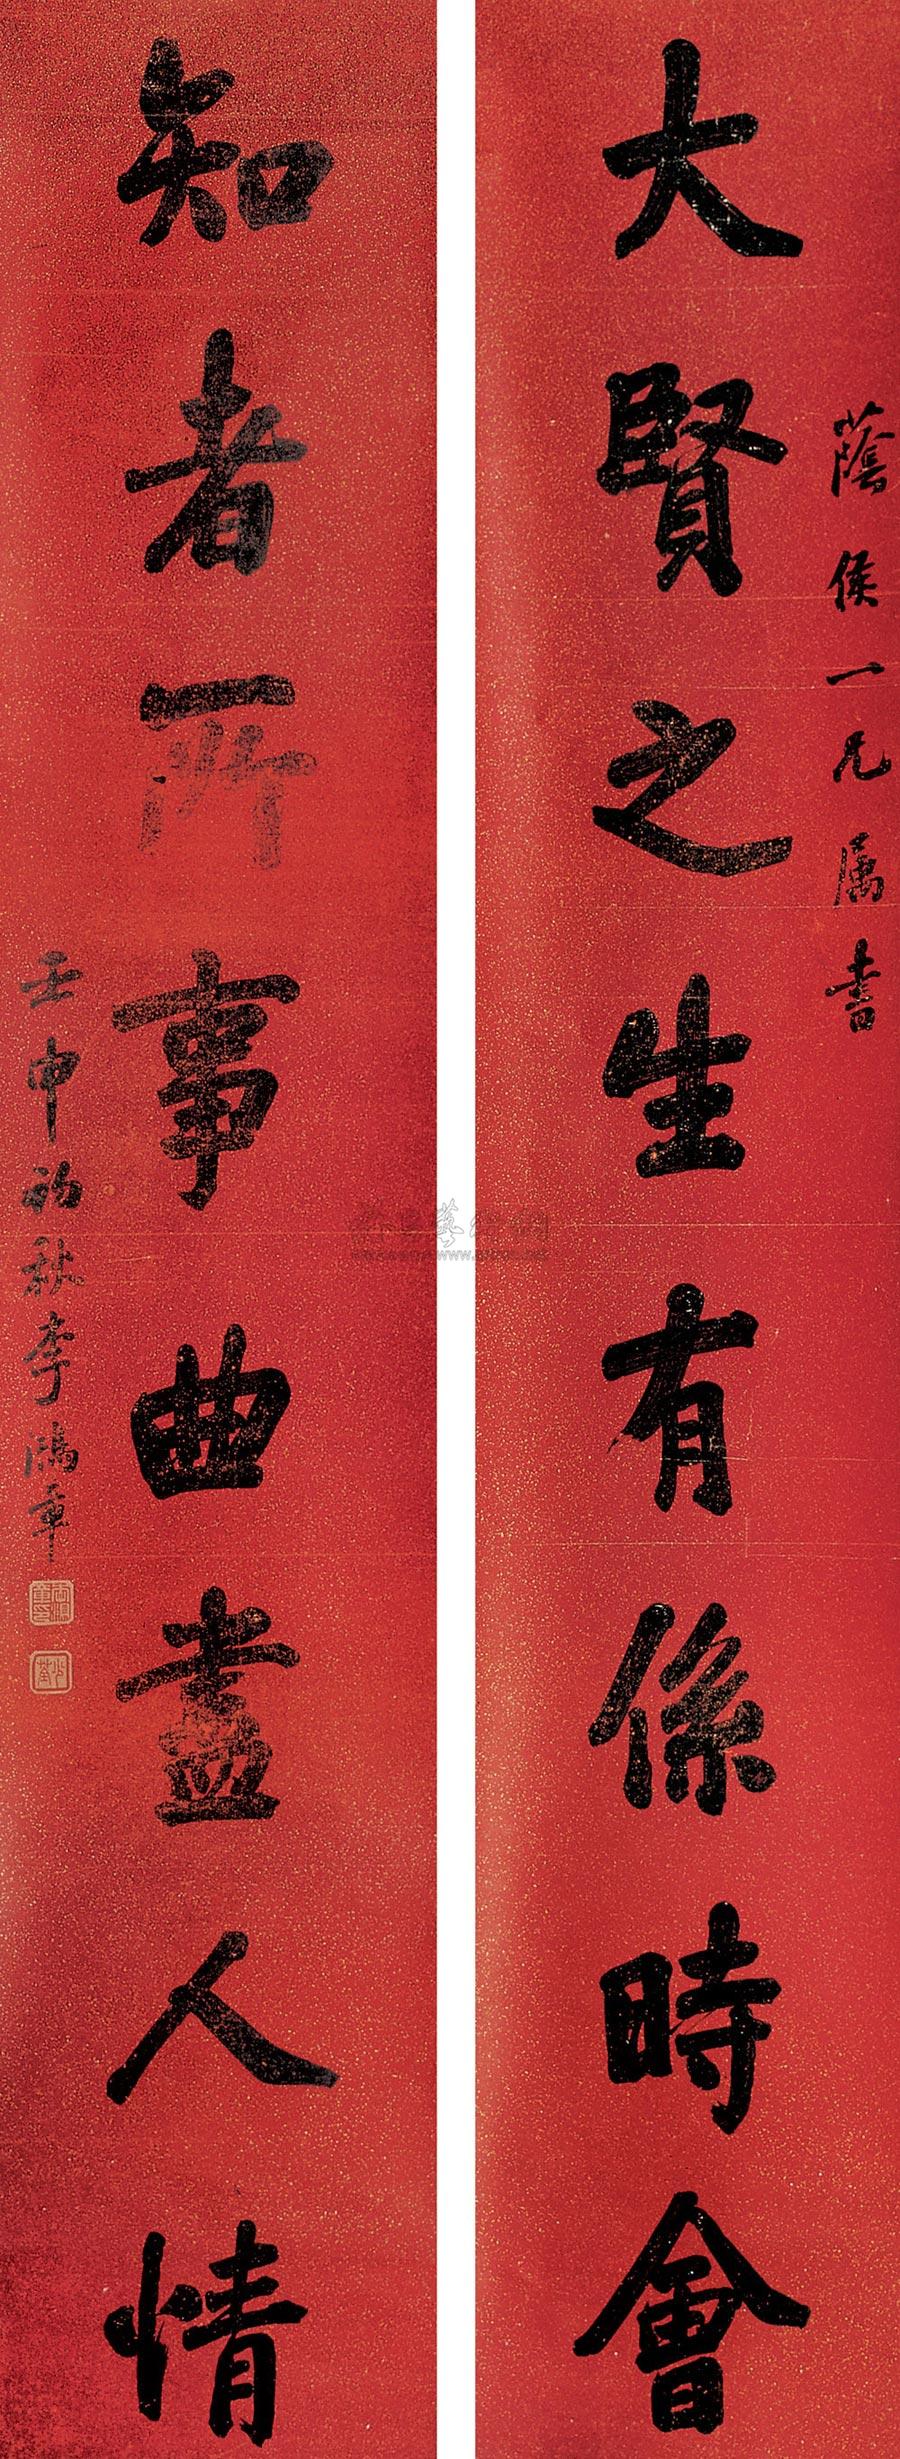 大賢之生有係時會
蔭侯一兄属書
知者所事曲盡人情
壬申初秋李鴻章